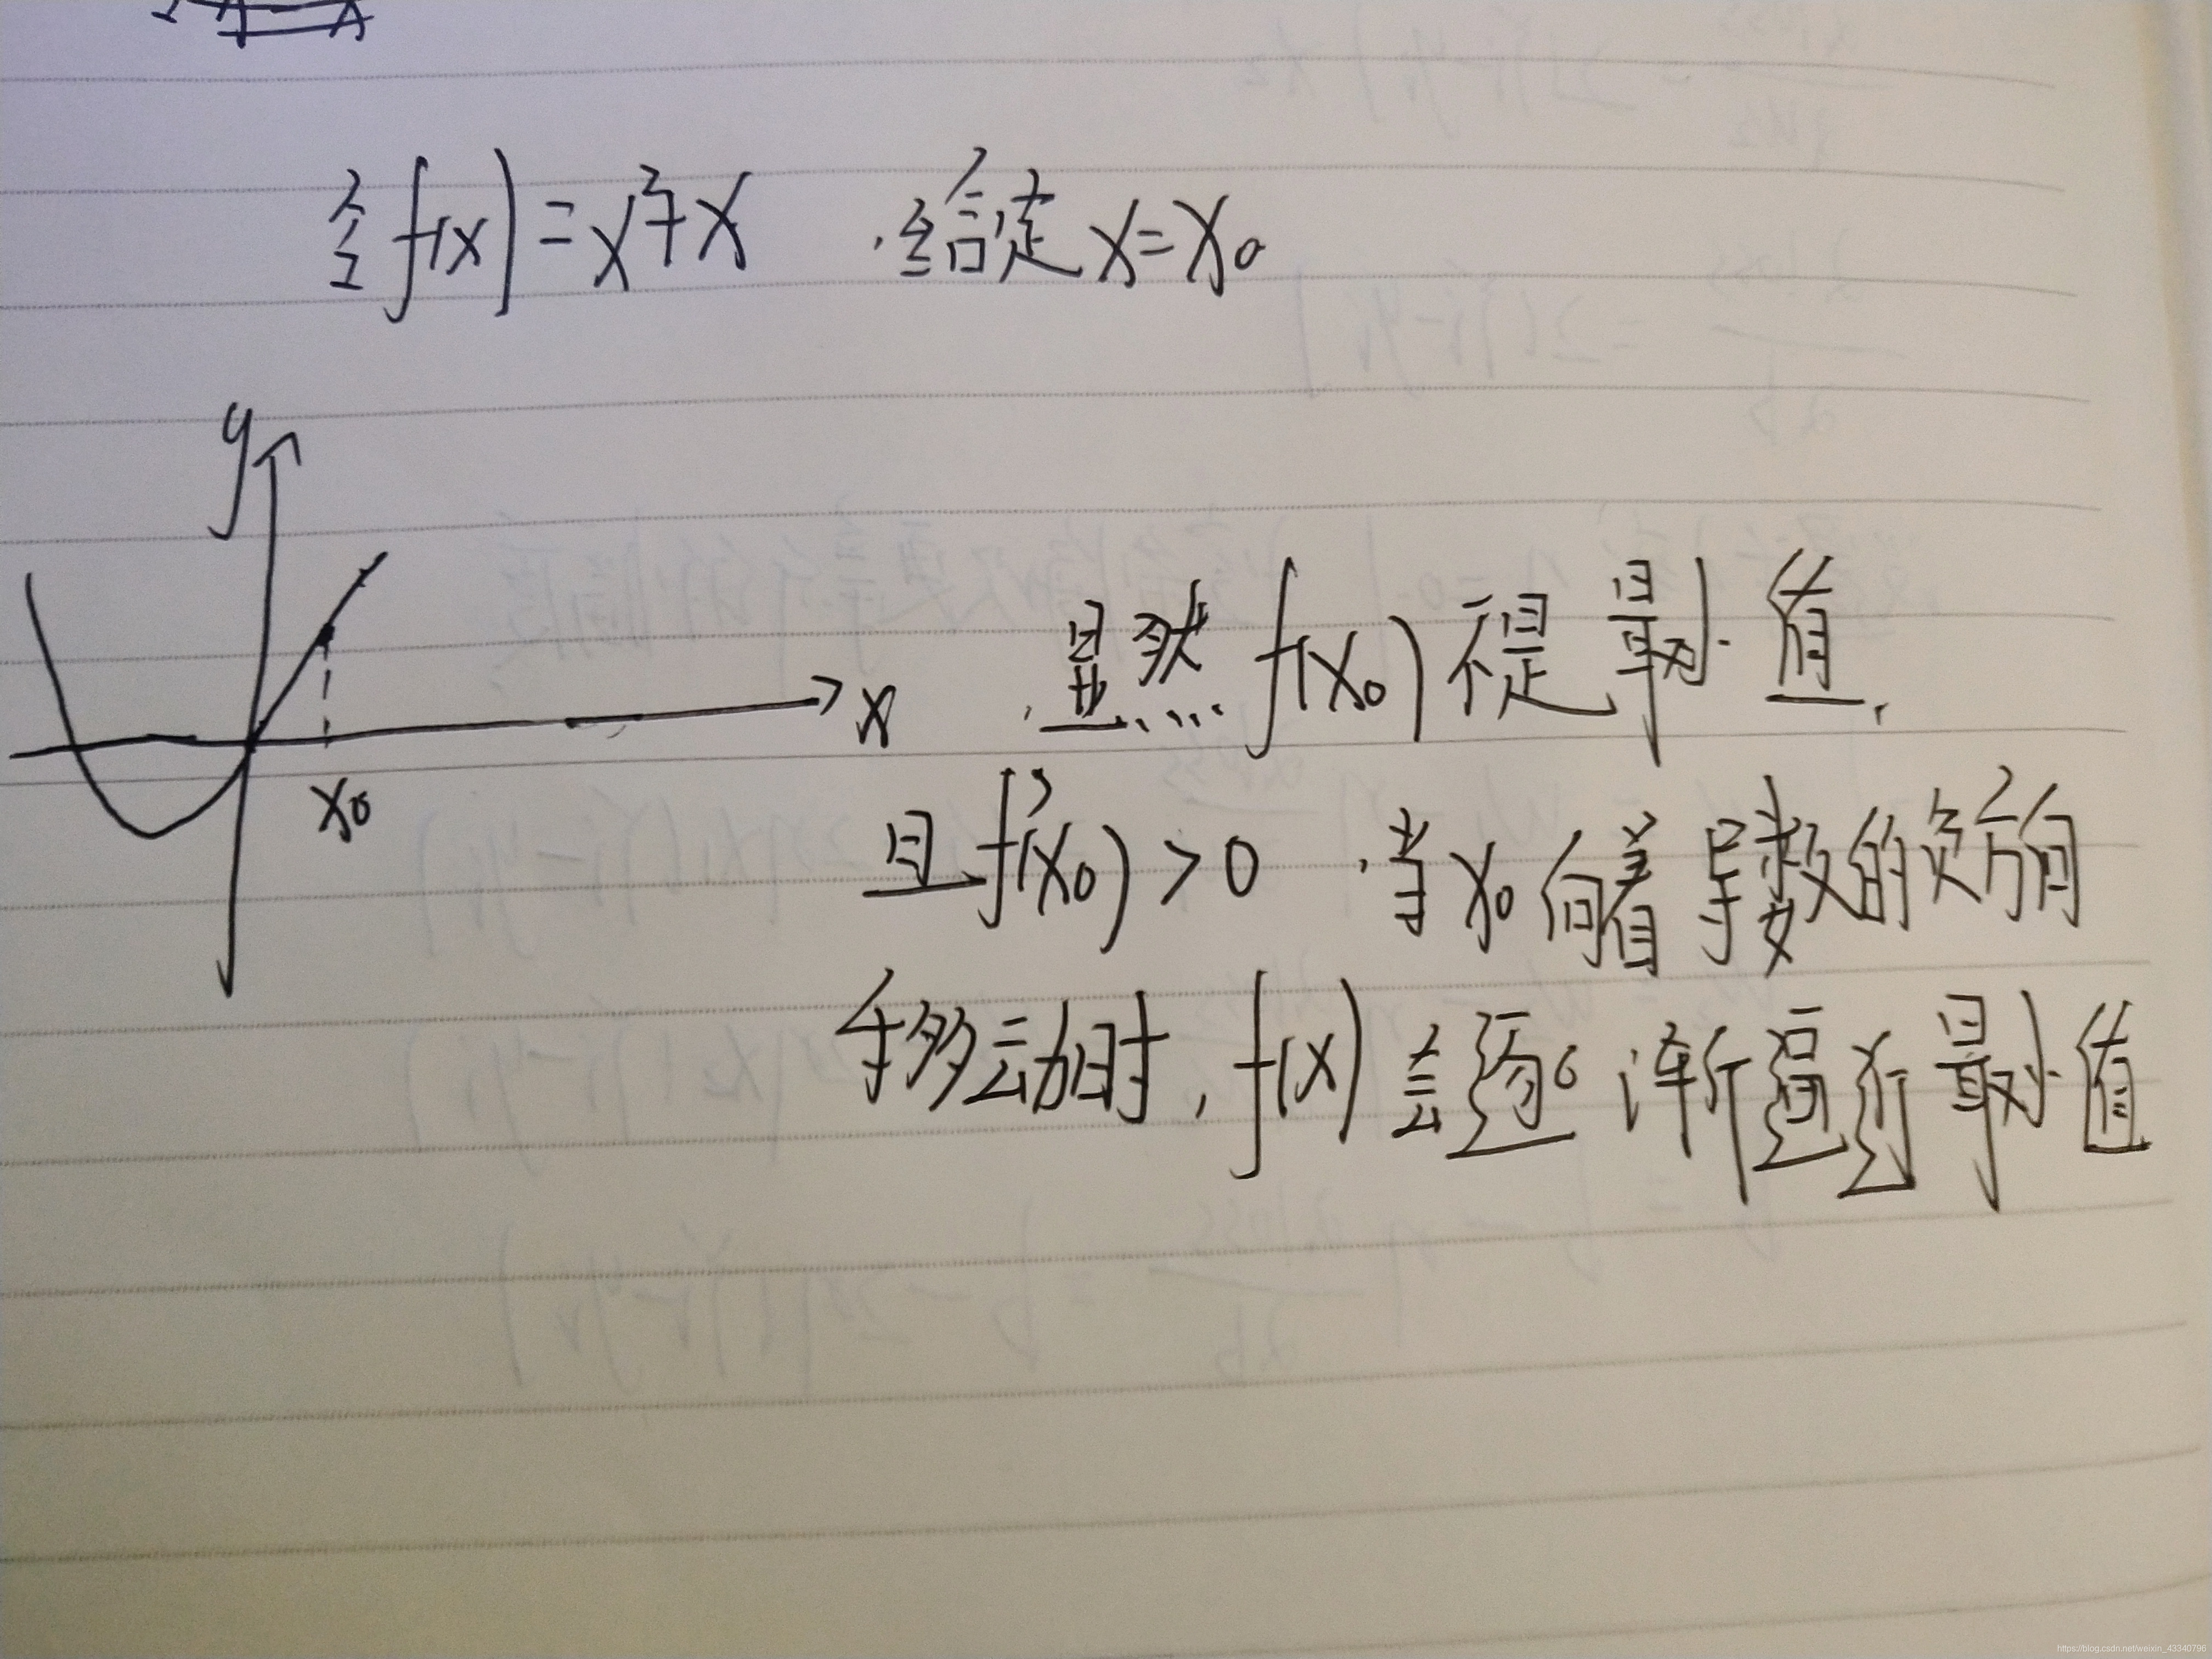 令f(x)=x²+x ,给定x=x₀
y
x
x₀
,显然f(x₀)不是最小值,
且f'(x₀)>0 ,当x₀向着导数的负方向
移动时,f(x)会逐渐逼近最小值
https://blog.csdn.net/weixin_43340796